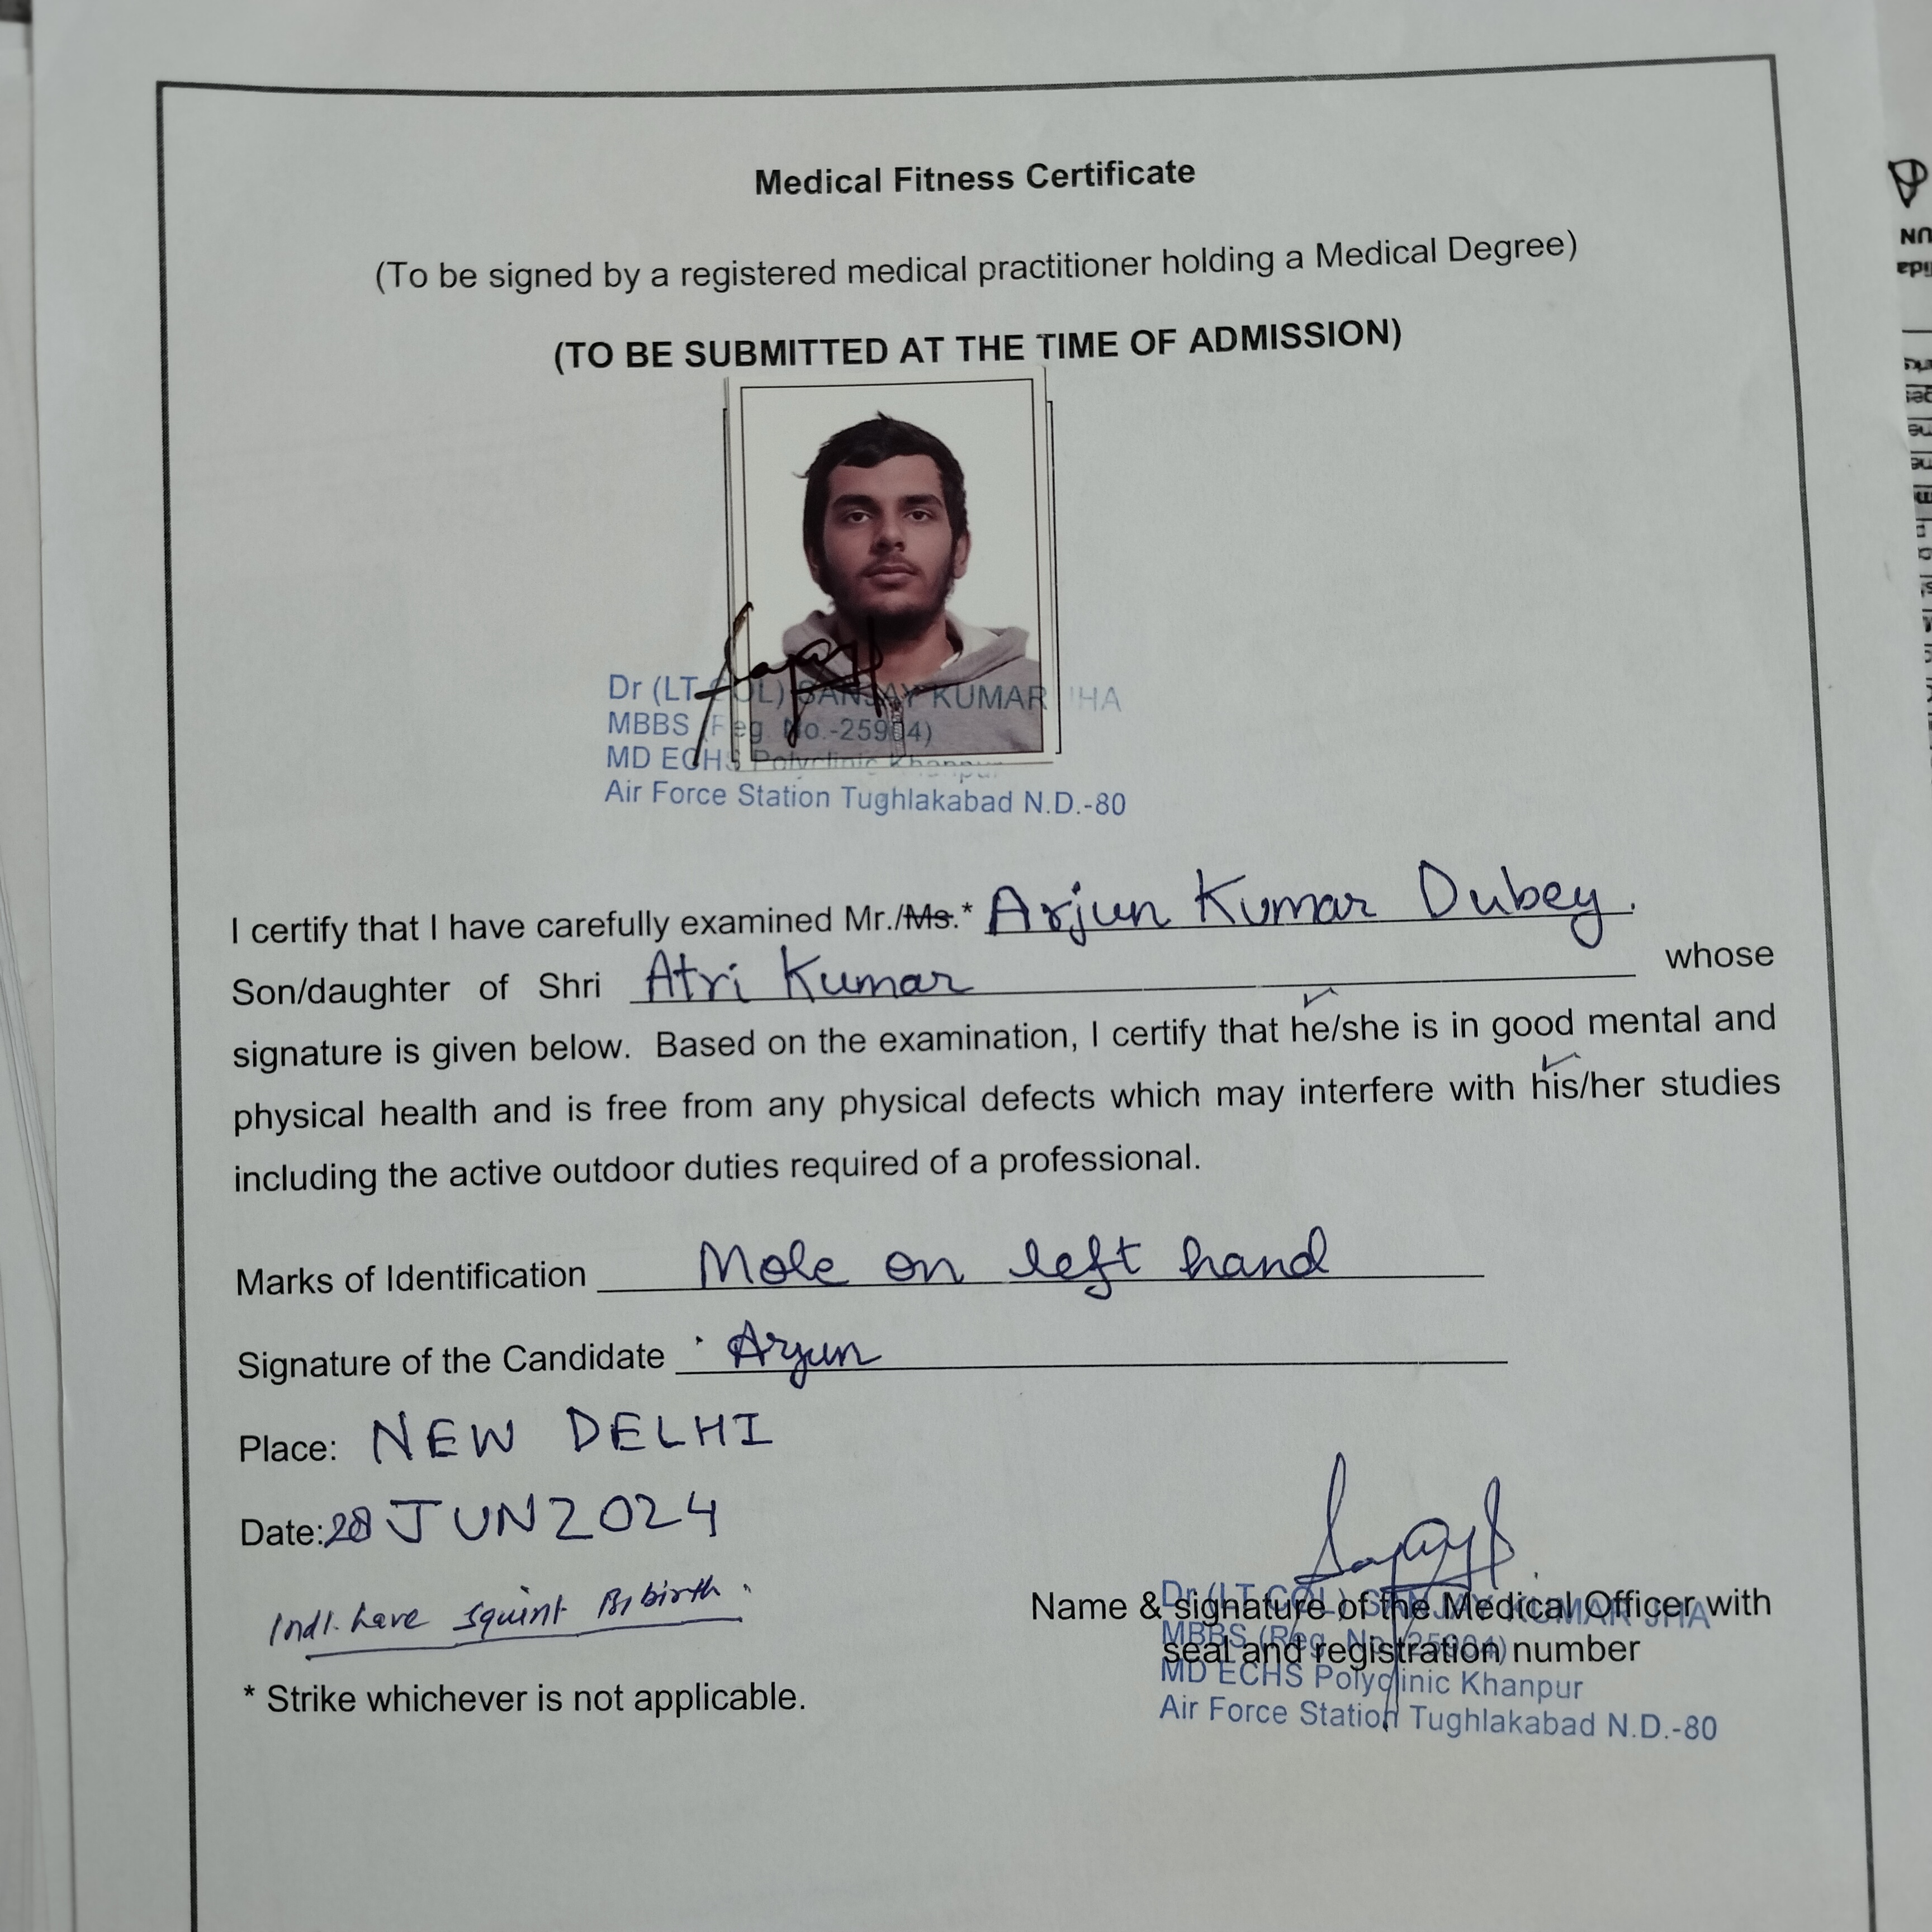 Medical Fitness Certificate
(To be signed by a registered medical practitioner holding a Medical Degree)
(TO BE SUBMITTED AT THE TIME OF ADMISSION)
Dr (LT COL) SANJAY KUMAR JHA
MBBS (Reg. No.-25904)
MD ECHS Polyclinic Khanpur
Air Force Station Tughlakabad N.D.-80
I certify that I have carefully examined Mr./Ms.* Arjun Kumar Dubey.
Son/daughter of Shri Atri Kumar whose
signature is given below. Based on the examination, I certify that he/she is in good mental and
physical health and is free from any physical defects which may interfere with his/her studies
including the active outdoor duties required of a professional.
Marks of Identification Mole on left hand
Signature of the Candidate Arjun
Place: NEW DELHI
Date: 28 JUN 2024
Indl. have squint birth.
Name & signature of the Medical Officer with
seal and registration number
Dr (LT COL) SANJAY KUMAR JHA
MBBS (Reg. No.-25904)
MD ECHS Polyclinic Khanpur
Air Force Station Tughlakabad N.D.-80
* Strike whichever is not applicable.